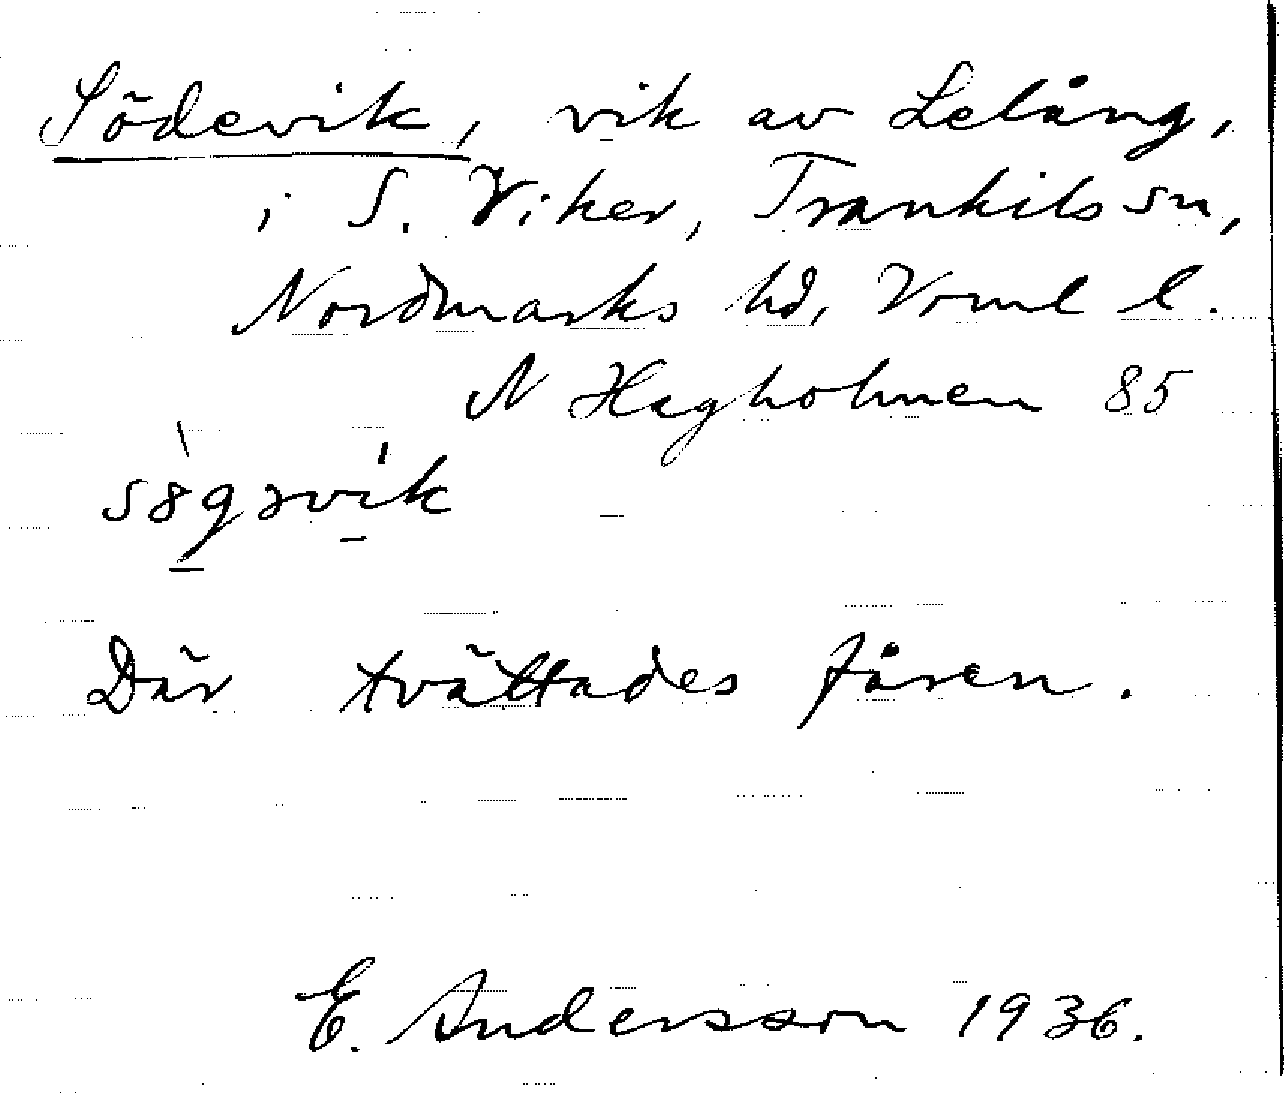 Södevik, vik av Lelång,
i S. Viker, Trankils sn,
Nordmarks hd, Vrml l.
N Hagholmen 85
Där tvättades fåren.
E. Andersson 1936.